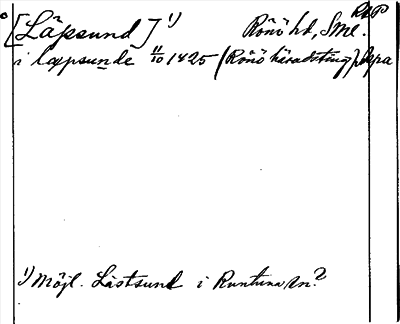 [Läpsund] 1) Rönö hd, Sml. RAP
i læpsunde 11/10 1425 (Rönö häradsting) Depa
1) Möjl. Låstsund i Runtuna sn?